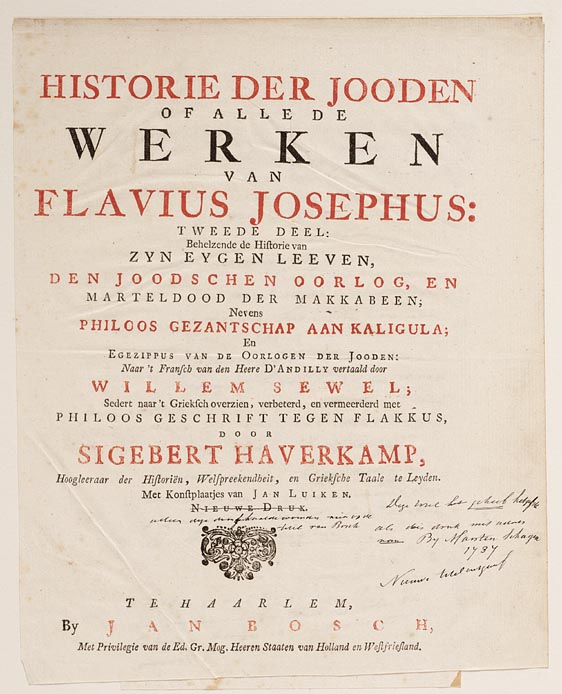 HISTORIE DER JOODEN
OF ALLE DE
WERKEN
VAN
FLAVIUS JOSEPHUS:
TWEEDE DEEL:
Behelzende de Historie van
ZYN EYGEN LEEVEN,
DEN JOODSCHEN OORLOG, EN
MARTELDOOD DER MAKKABEEN;
Nevens
PHILOOS GEZANTSCHAP AAN KALIGULA;
En
EGEZIPPUS VAN DE OORLOGEN DER JOODEN:
Naar 't Fransch van den Heere D'ANDILLY vertaald door
WILLEM SEWEL;
Sedert naar 't Grieksch overzien, verbeterd, en vermeerderd met
PHILOOS GESCHRIFT TEGEN FLAKKUS,
DOOR
SIGEBERT HAVERKAMP,
Hoogleeraar der Historiën, Welspreekendheit, en Grieksche Taale te Leyden.
Met Konstplaatjes van JAN LUIKEN.
NIEUWE DRUK.
Deze titel het geheel
van Bosch
als die druk met adres
By Marten Schagen
1737
Nieuwe
TE HAARLEM,
By JAN BOSCH,
Met Privilegie van de Ed. Gr. Mog. Heeren Staaten van Holland en Westfriesland.